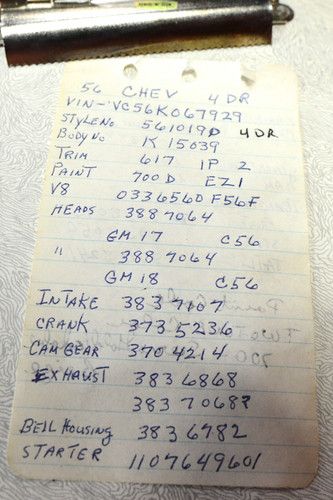 56 CHEV 4 DR
VIN-VC56K067929
STYLE No 561019D 4DR
BODY No K 15039
TRIM 617 IP 2
PAINT 700 D EZ1
V8 0336560 F56F
HEADS 3887064
GM 17 C56
" 3887064
GM 18 C56
INTAKE 3837107
CRANK 3735236
CAM GEAR 3704214
EXHAUST 3836868
3837068?
BELL HOUSING 3836782
STARTER 1107649601